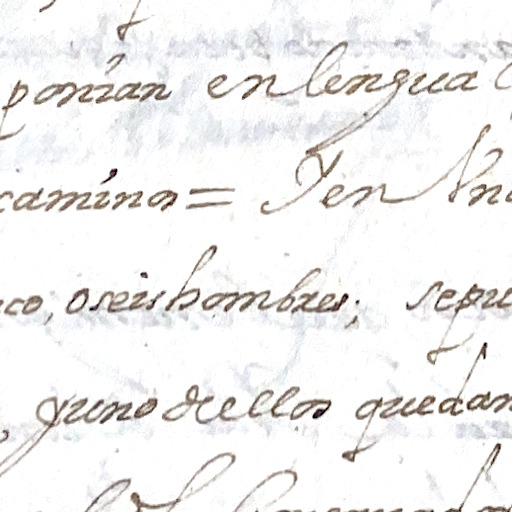 ponian en lengua
caminos = Y en Un
co, o seis hombres; sepu
y uno de ellos quedan